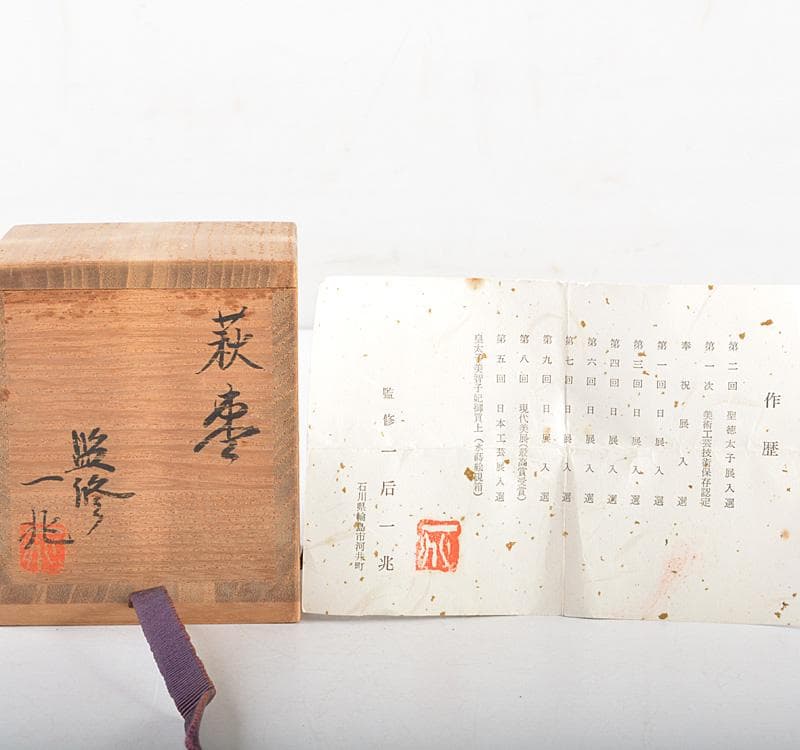 萩棗
監修
一兆
作歴
第二回 聖徳太子展入選
第一次 美術工芸技術保存認定
奉祝展入選
第一回日展入選
第三回日展入選
第四回日展入選
第六回日展入選
第七回日展入選
第九回日展入選
第八回 現代美展(最高賞受賞)
第五回 日本工芸展入選
皇太子美智子妃御買上(水蒔絵硯箱)
監修 一后一兆
石川県輪島市河井町